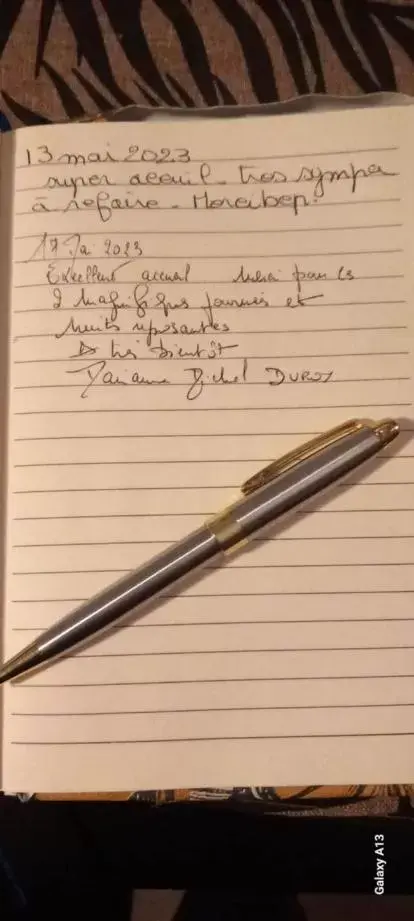 13 mai 2023
super accuil - tres sympa
à refaire - Merci bep.
17 2023
Excellent accueil Merci pour ces
2 magnifiques journées et
nuits reposantes
A très bientôt
Marianne Michel DUROY
Galaxy A13